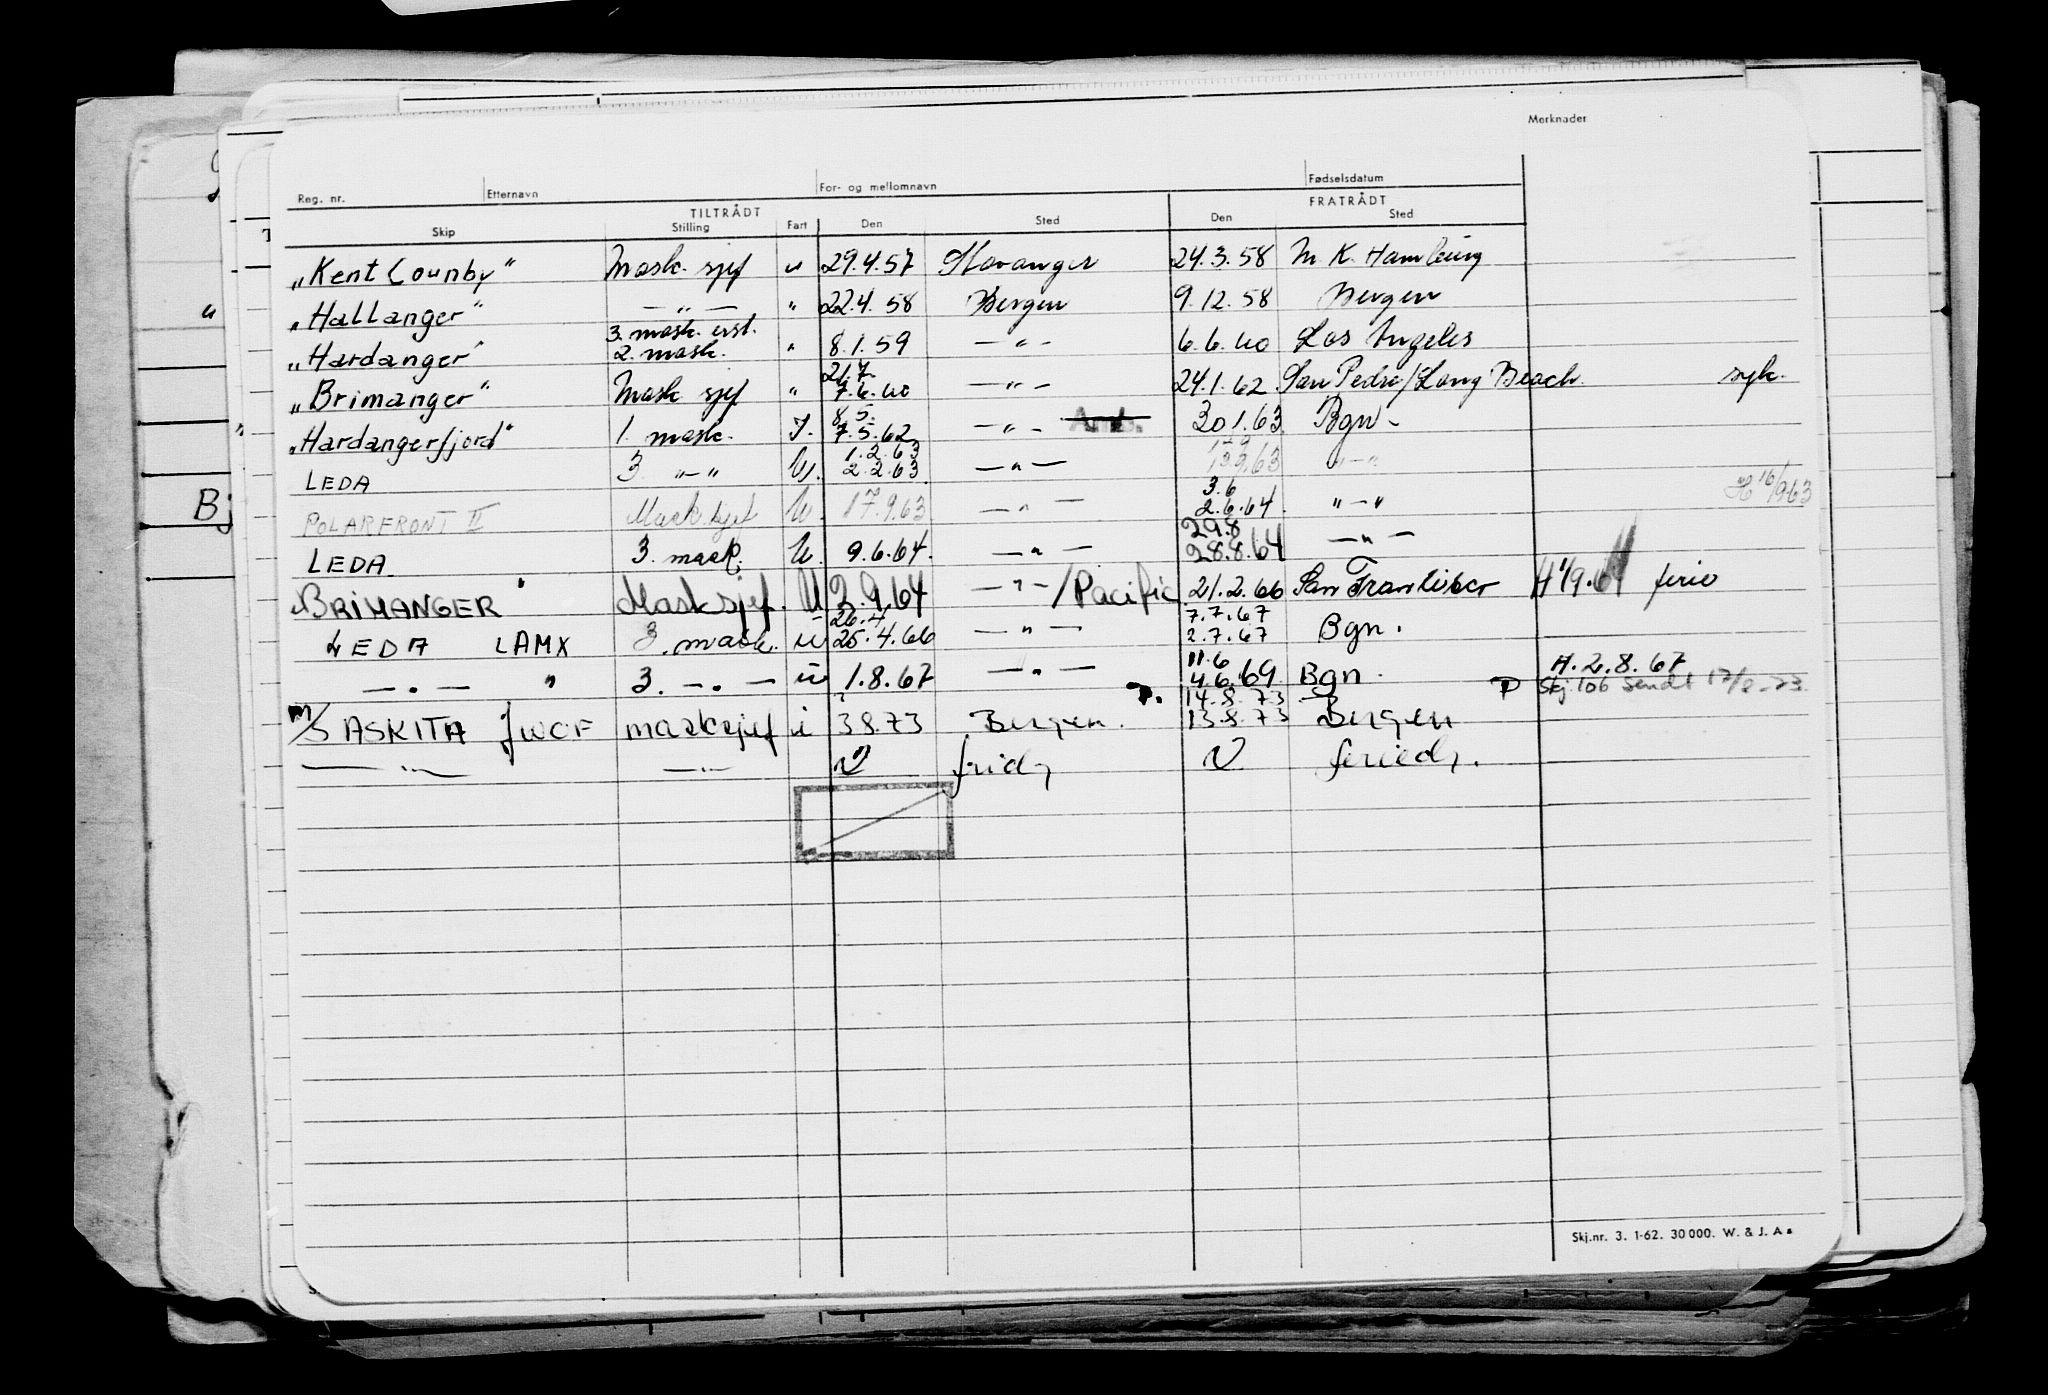 Merknader
Reg. nr. Etternavn For- og mellomnavn Fødselsdatum
TILTRÅDT FRATRÅDT
Skip Stilling Fart Den Sted Den Sted
"Kent Counby" Mask. sjef u 29.4.57 Stavanger 24.3.58 M. K. Hamburg
"Hallanger" — " — " 22.4.58 Bergen 9.12.58 Bergen
3. mask. ass.
"Hardanger" 2. mask. " 8.1.59 — " — 6.6.60 Los Angeles
21.7.
"Brimanger" Mask sjef " 7.6.60 — " — 24.1.62 San Pedro/Long Beach. syk.
8.5.
"Hardangerfjord" 1. mask. I. 7.5.62 — " — 30.1.63 Bgn.
1.2.63
LEDA 3. " — " U. 2.2.63 — " — 13.9.63 " — "
3.6
POLARFRONT II Mask.sjef U. 17.9.63 — " — 2.6.64 " — " H 16/9-63
29.8
LEDA 3. mask. U. 9.6.64. — " — 28.8.64 — " —
"BRIMANGER" Masksjef. U 2.9.64 — " — /Pacific 21.2.66 San Francisco H 1/9.64 ferie
26.4 7.7.67
LEDA LAMX 3. mask. u 25.4.66 — " — 2.7.67 Bgn.
11.6
— " — " 3. — " — u 1.8.67 — " — 4.6.69 Bgn. H. 2.8.67
P. 14.8.73 P Skj. 106 sendt 17/8-73.
M/S ASKITA JWCF masksjef i 3.8.73 Bergen. 13.8.73 Bergen
— " — — " — frid, feried,.
Skj.nr. 3. 1-62. 30 000. W. & J. A s
Bj